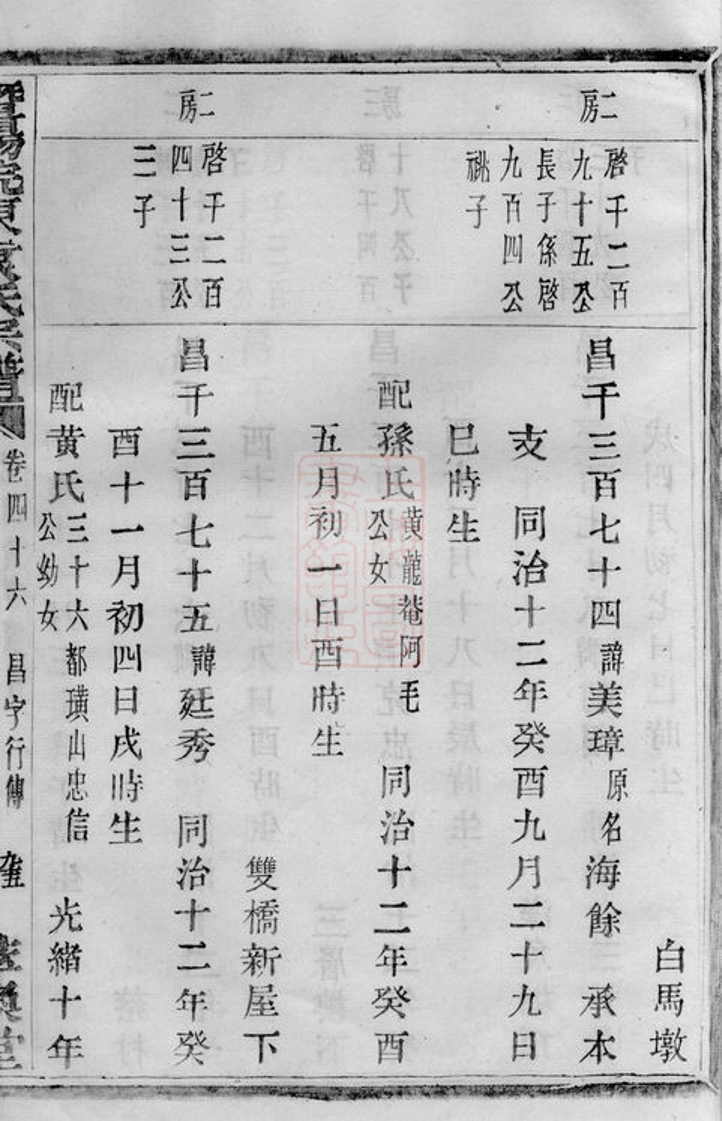 白馬墩
二房
啓千二百
九十五公
長子係啓
九百四公
祧子
昌千三百七十四諱美璋原名海餘 承本
支 同治十二年癸酉九月二十九日
巳時生
配孫氏黄龍菴阿毛公女 同治十二年癸酉
五月初一日酉時生
雙橋新屋下
二房
啓千二百
四十三公
三子
昌千三百七十五諱廷秀 同治十二年癸
酉十一月初四日戌時生
配黄氏三十六都璜山忠信公幼女 光緒十年
氏宗譜 卷四十六 昌字行傳 堂